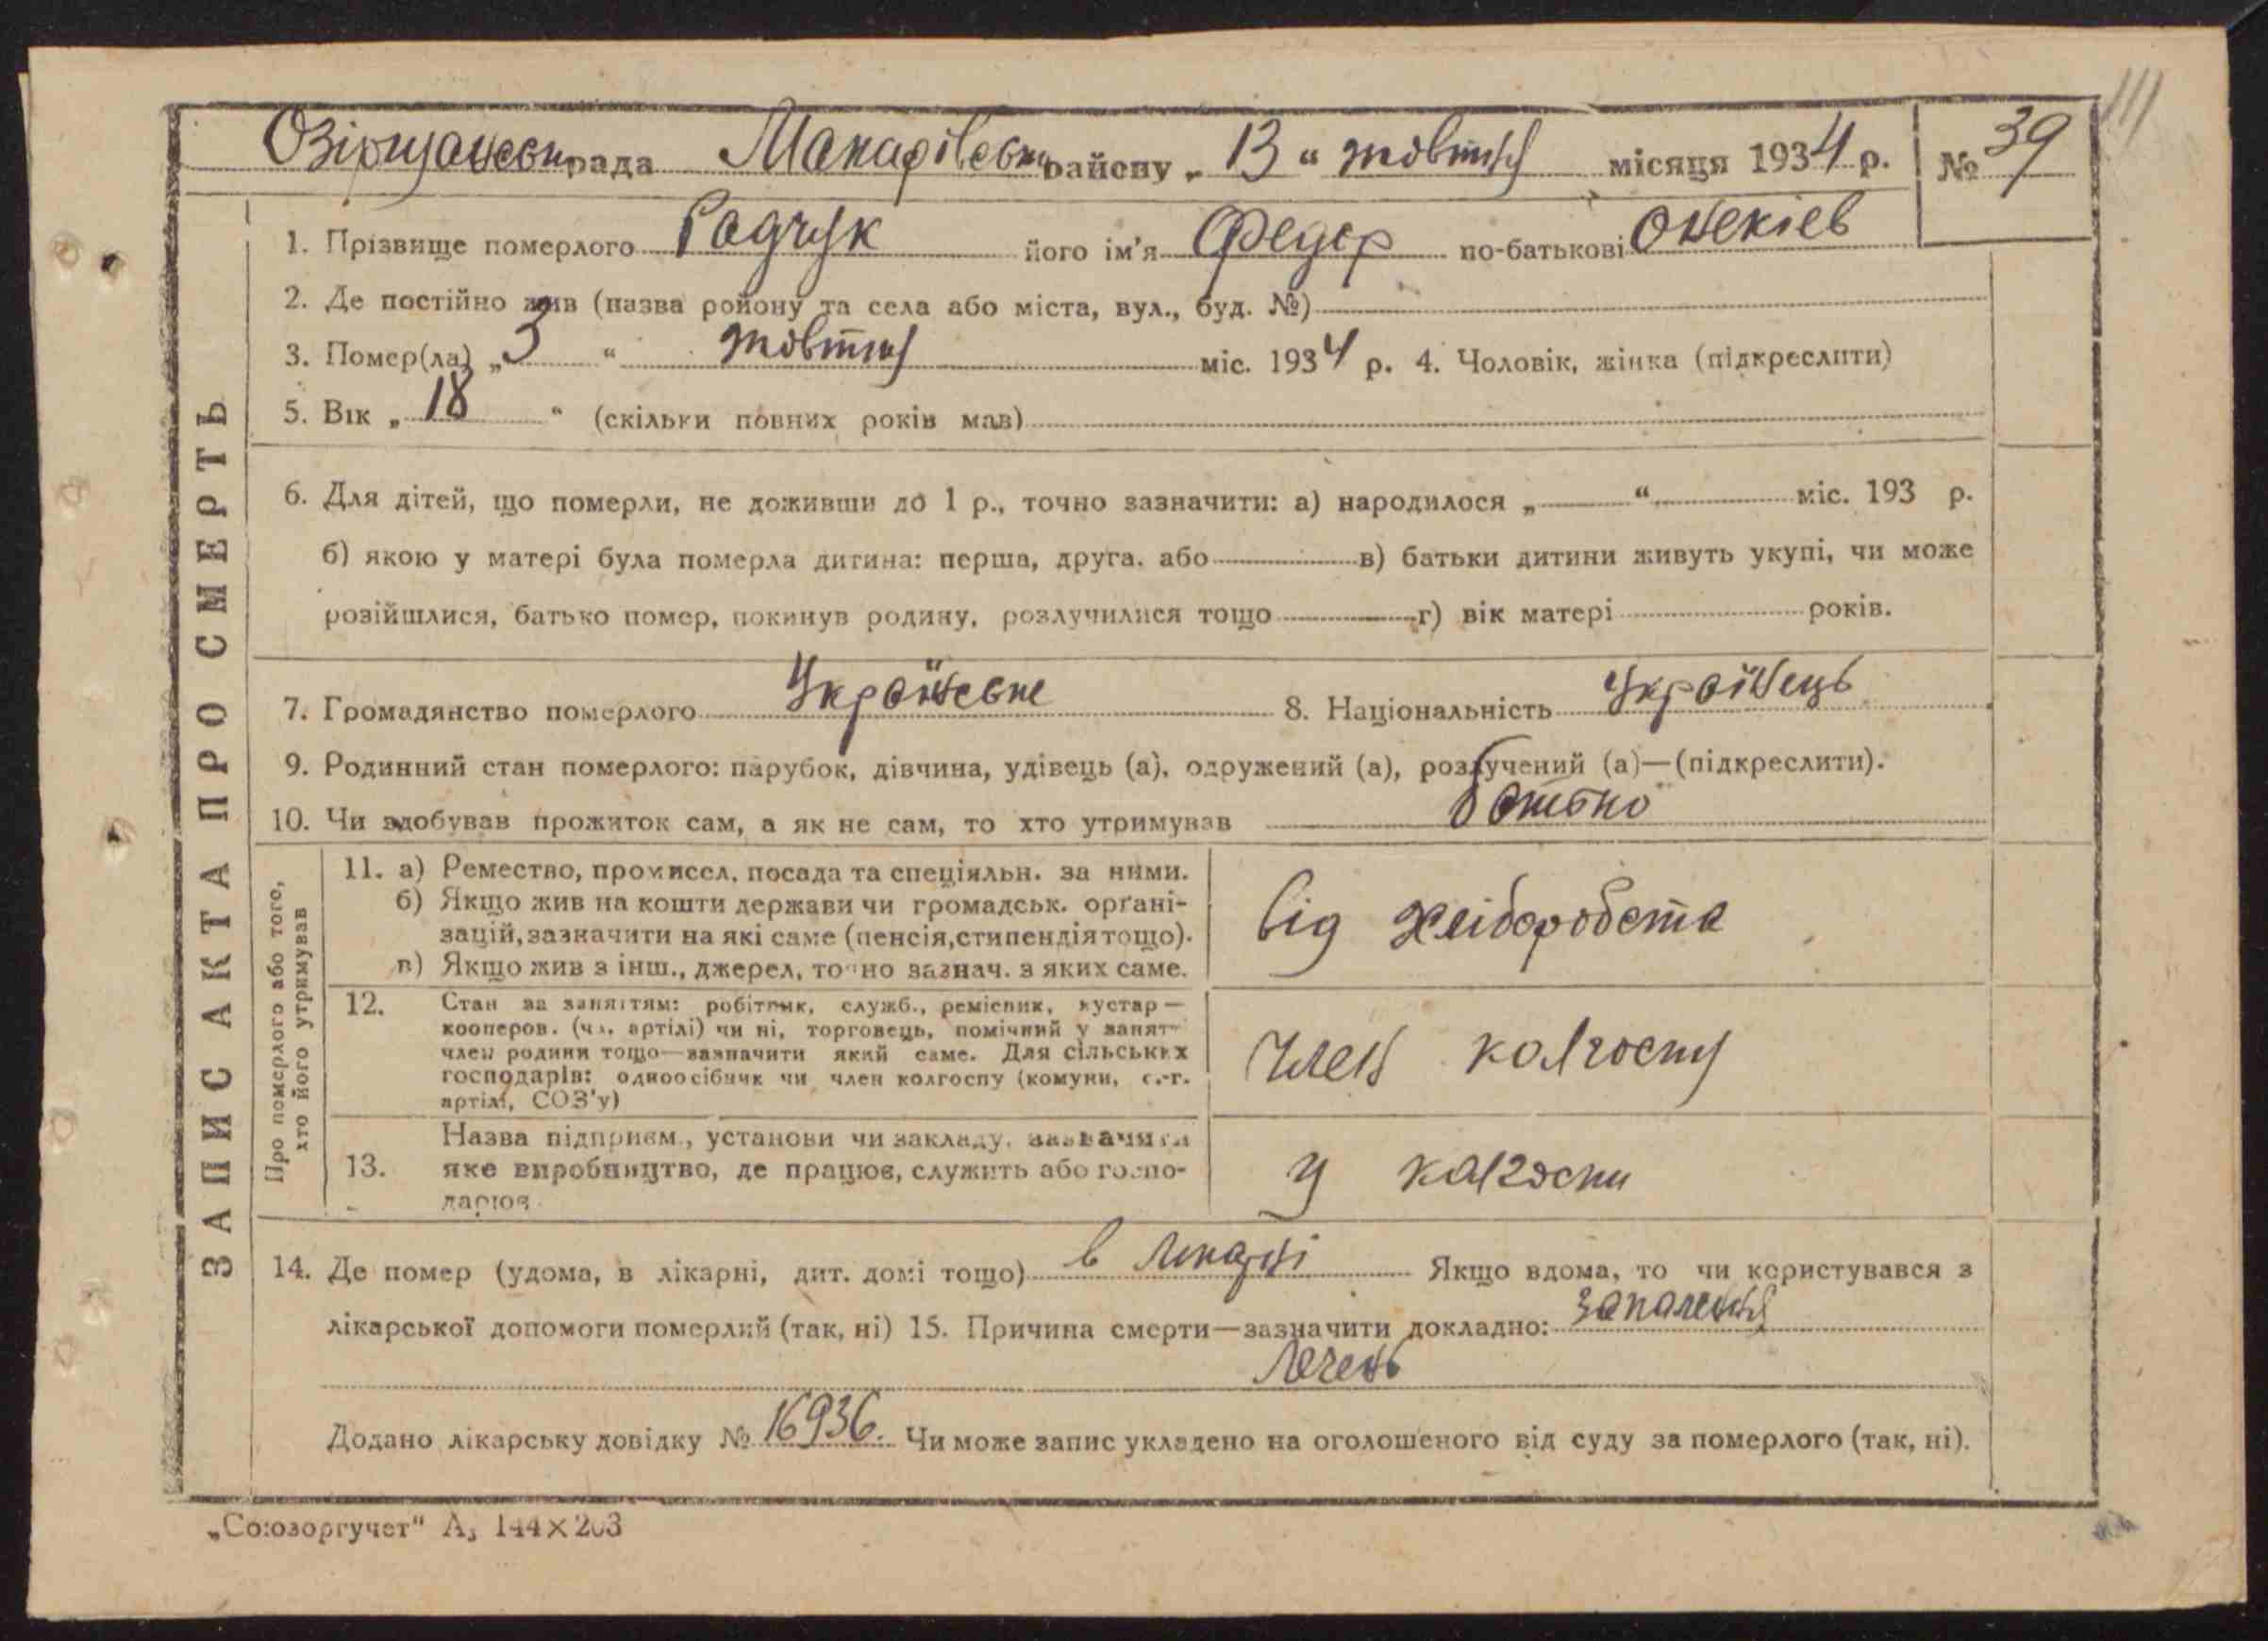 Озірщанськ рада Макарівськ району „ 13 “ жовтня місяця 1934 р. № 39
111
ЗАПИС АКТА ПРО СМЕРТЬ
1. Прізвище померлого Радчук його ім'я Федер по-батькові Онекіев
2. Де постійно жив (назва ройону та села або міста, вул., буд. №)
3. Помер(ла) „ 3 “ жовтня міс. 1934 р. 4. Чоловік, жінка (підкреслити)
5. Вік „ 18 “ (скільки повних років мав)
6. Для дітей, що померли, не доживши до 1 р., точно зазначити: а) народилося „ “ міс. 193 р.
б) якою у матері була померла дитина: перша, друга, або в) батьки дитини живуть укупі, чи може
розійшлися, батько помер, покинув родину, розлучилися тощо г) вік матері років.
7. Громадянство померлого Українське 8. Національність Українець
9. Родинний стан померлого: парубок, дівчина, удівець (а), одружений (а), розлучений (а)—(підкреслити).
10. Чи здобував прожиток сам, а як не сам, то хто утримував батько
Про померлого або того,
хто його утримував
11. а) Ремество, промисел, посада та спеціяльн. за ними.
б) Якщо жив на кошти держави чи громадськ. орґані-
зацій, зазначити на які саме (пенсія, стипендія тощо).
в) Якщо жив з інш., джерел, точно зазнач. з яких саме.
від хліборобота
12. Стан за заняттям: робітник, служб., ремісник, кустар —
кооперов. (чл. артілі) чи ні, торговець, помічний у занят
член родини тощо—зазначити який саме. Для сільських
господарів: одноосібник чи член колгоспу (комуни, с.-г.
артілі, СОЗ'у)
член колгоспу
13. Назва підприєм., установи чи закладу, зазначити
яке виробництво, де працює, служить або госпо-
дарює
У колгоспи
14. Де помер (удома, в лікарні, дит. домі тощо) в лікарні Якщо вдома, то чи користувався з
лікарської допомоги померлий (так, ні) 15. Причина смерти—зазначити докладно: запалення
легень
Додано лікарську довідку № 16936. Чи може запис укладено на оголошеного від суду за померлого (так, ні).
„Союзоргучет“ А₅ 144×203